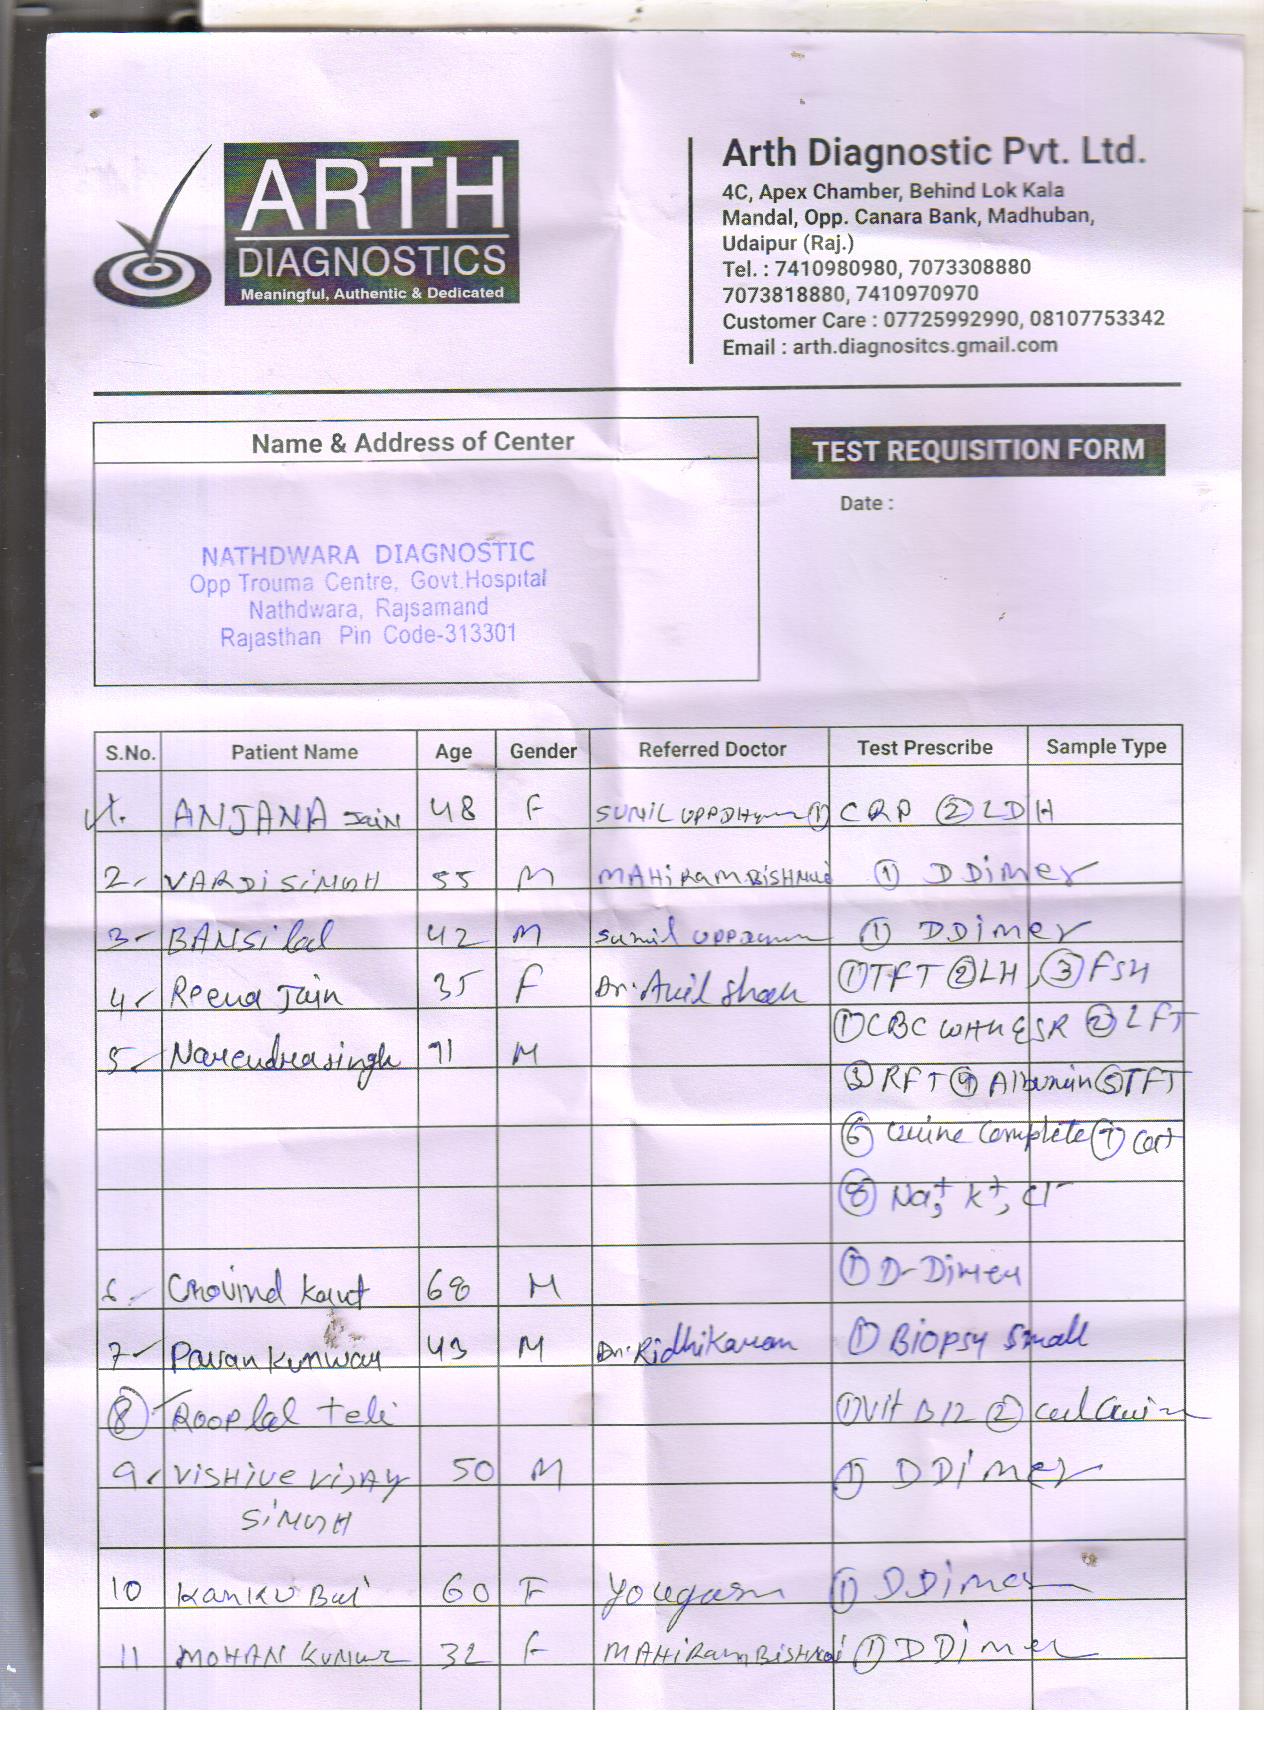 ARTH
DIAGNOSTICS
Meaningful, Authentic & Dedicated
Arth Diagnostic Pvt. Ltd.
4C, Apex Chamber, Behind Lok Kala
Mandal, Opp. Canara Bank, Madhuban,
Udaipur (Raj.)
Tel. : 7410980980, 7073308880
7073818880, 7410970970
Customer Care : 07725992990, 08107753342
Email : arth.diagnositcs.gmail.com
Name & Address of Center
TEST REQUISITION FORM
Date :
NATHDWARA DIAGNOSTIC
Opp Trouma Centre, Govt.Hospital
Nathdwara, Rajsamand
Rajasthan Pin Code-313301
S.No. Patient Name Age Gender Referred Doctor Test Prescribe Sample Type
1. ANJANA Jain 48 F SUNIL ① CRP ② LDH
2- VARDISINGH 55 M MAHIRAM BISHNOI ① D Dimer
3- BANSilal 42 M Sunil ① D Dimer
4 Reena Jain 35 F Dr. Anil Shah ① TFT ② LH, ③ FSH
5 Narendrasingh 71 M ① CBC with ESR ② LFT
③ RFT ④ Albumin ⑤ TFT
⑥ Urine Complete ⑦
⑧ Na+, K+, Cl-
6 68 M ① D-Dimer
7 Pavan Kunwar 43 M Dr. Ridhikaran ① Biopsy Small
⑧ Rooplal Teli ① Vit B12 ②
9 VISHIVE VIJAY 50 M ① D Dimer
SINGH
10 Kanku Bai 60 F ① D Dimer
11 MOHAN KUNWR 32 F MAHIRam BISHNOI ① D Dimer